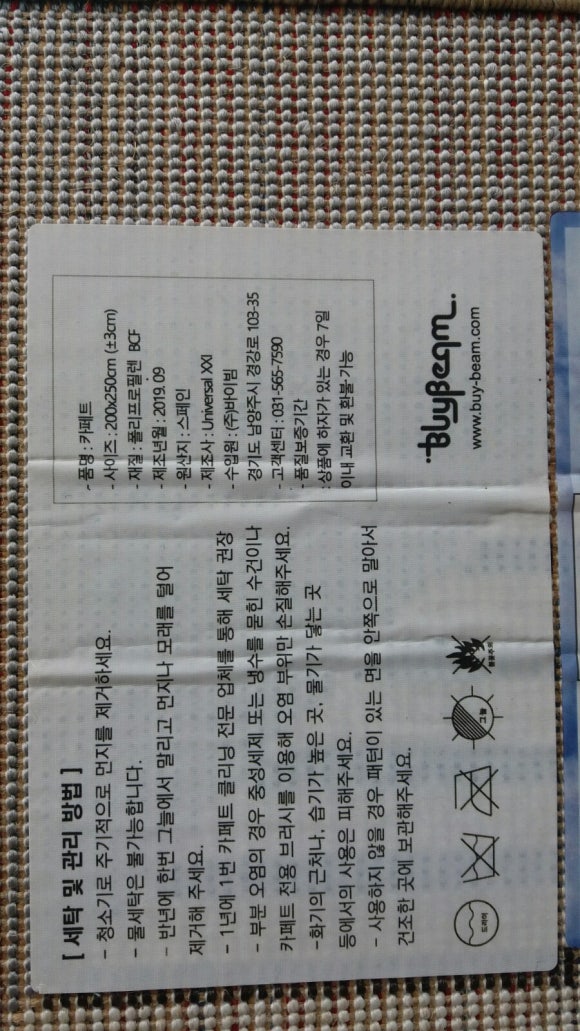 [ 세탁 및 관리 방법 ]
- 청소기로 주기적으로 먼지를 제거하세요.
- 물세탁은 불가능합니다.
- 반년에 한번 그늘에서 말리고 먼지나 모래를 털어
제거해 주세요.
- 1년에 1번 카페트 클리닝 전문 업체를 통해 세탁 권장
- 부분 오염의 경우 중성세제 또는 냉수를 묻힌 수건이나
카페트 전용 브러시를 이용해 오염 부위만 손질해주세요.
-화기의 근처나, 습기가 높은 곳, 물기가 닿는 곳
등에서의 사용은 피해주세요.
- 사용하지 않을 경우 패턴이 있는 면을 안쪽으로 말아서
건조한 곳에 보관해주세요.
드라이
그늘
- 품명 : 카페트
- 사이즈 : 200x250cm (±3cm)
- 재질 : 폴리프로필렌 BCF
- 제조년월 : 2019. 09
- 원산지 : 스페인
- 제조사 : Universal XXI
- 수입원 : (주)바이빔
경기도 남양주시 경강로 103-35
- 고객센터 : 031-565-7590
- 품질보증기간
: 상품에 하자가 있는 경우 7일
이내 교환 및 환불 가능
BuyBeam.
www.buy-beam.com